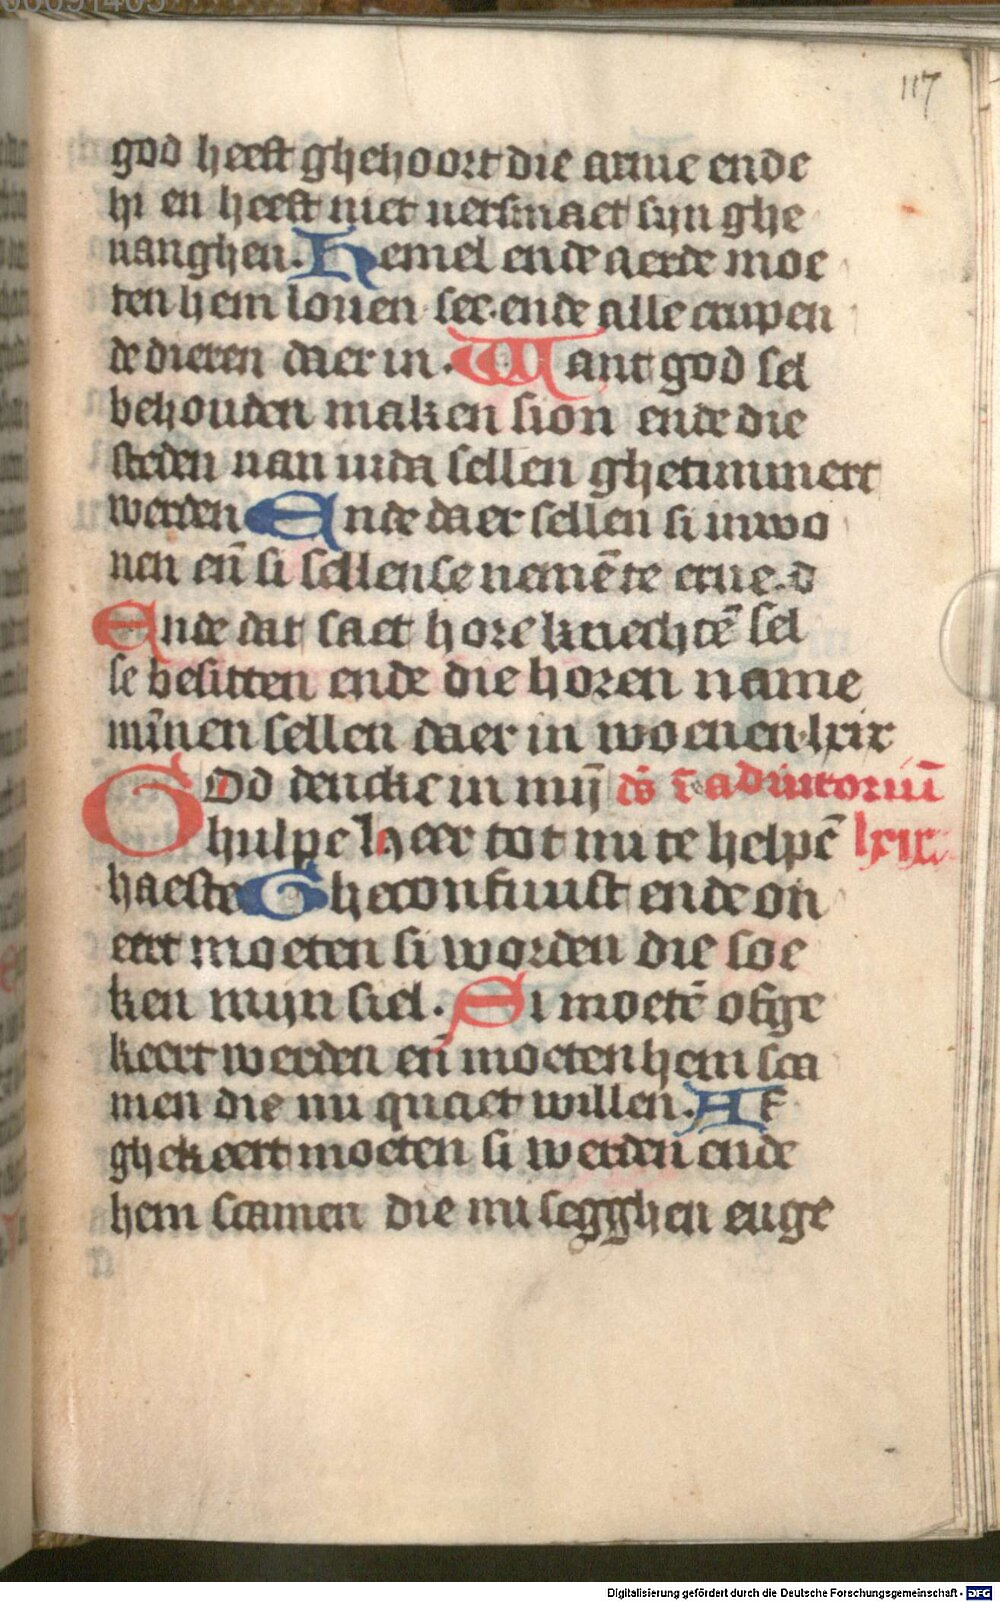 117
god heeft ghehoort die arme ende
hi en heeft niet uersmaet sijn ghe
uanghen. Hemel ende aerde moe
ten hem louen see. ende alle crupen
de dieren daer in. Want god sel
behouden maken sion ende die
steden uan iuda sellen ghetimmert
werden Ende daer sellen si inwo
nen eñ si sellense nemē te erue. d
Ende dat saet hore knechtē sel
se besitten ende die horen name
mīnen sellen daer in woenen lxix
God dencke in mij ds̄ ī adiutoriū
hulpe heer tot mi te helpē lxix.
haeste Gheconfuust ende on
eert moeten si worden die soe
ken mijn siel. Si moetē ofge
keert werden eñ moeten hem sca
men die mi quaet willen. Af
ghekeert moeten si werden ende
hem scamen die mi segghen euge
Digitalisierung gefördert durch die Deutsche Forschungsgemeinschaft - DFG